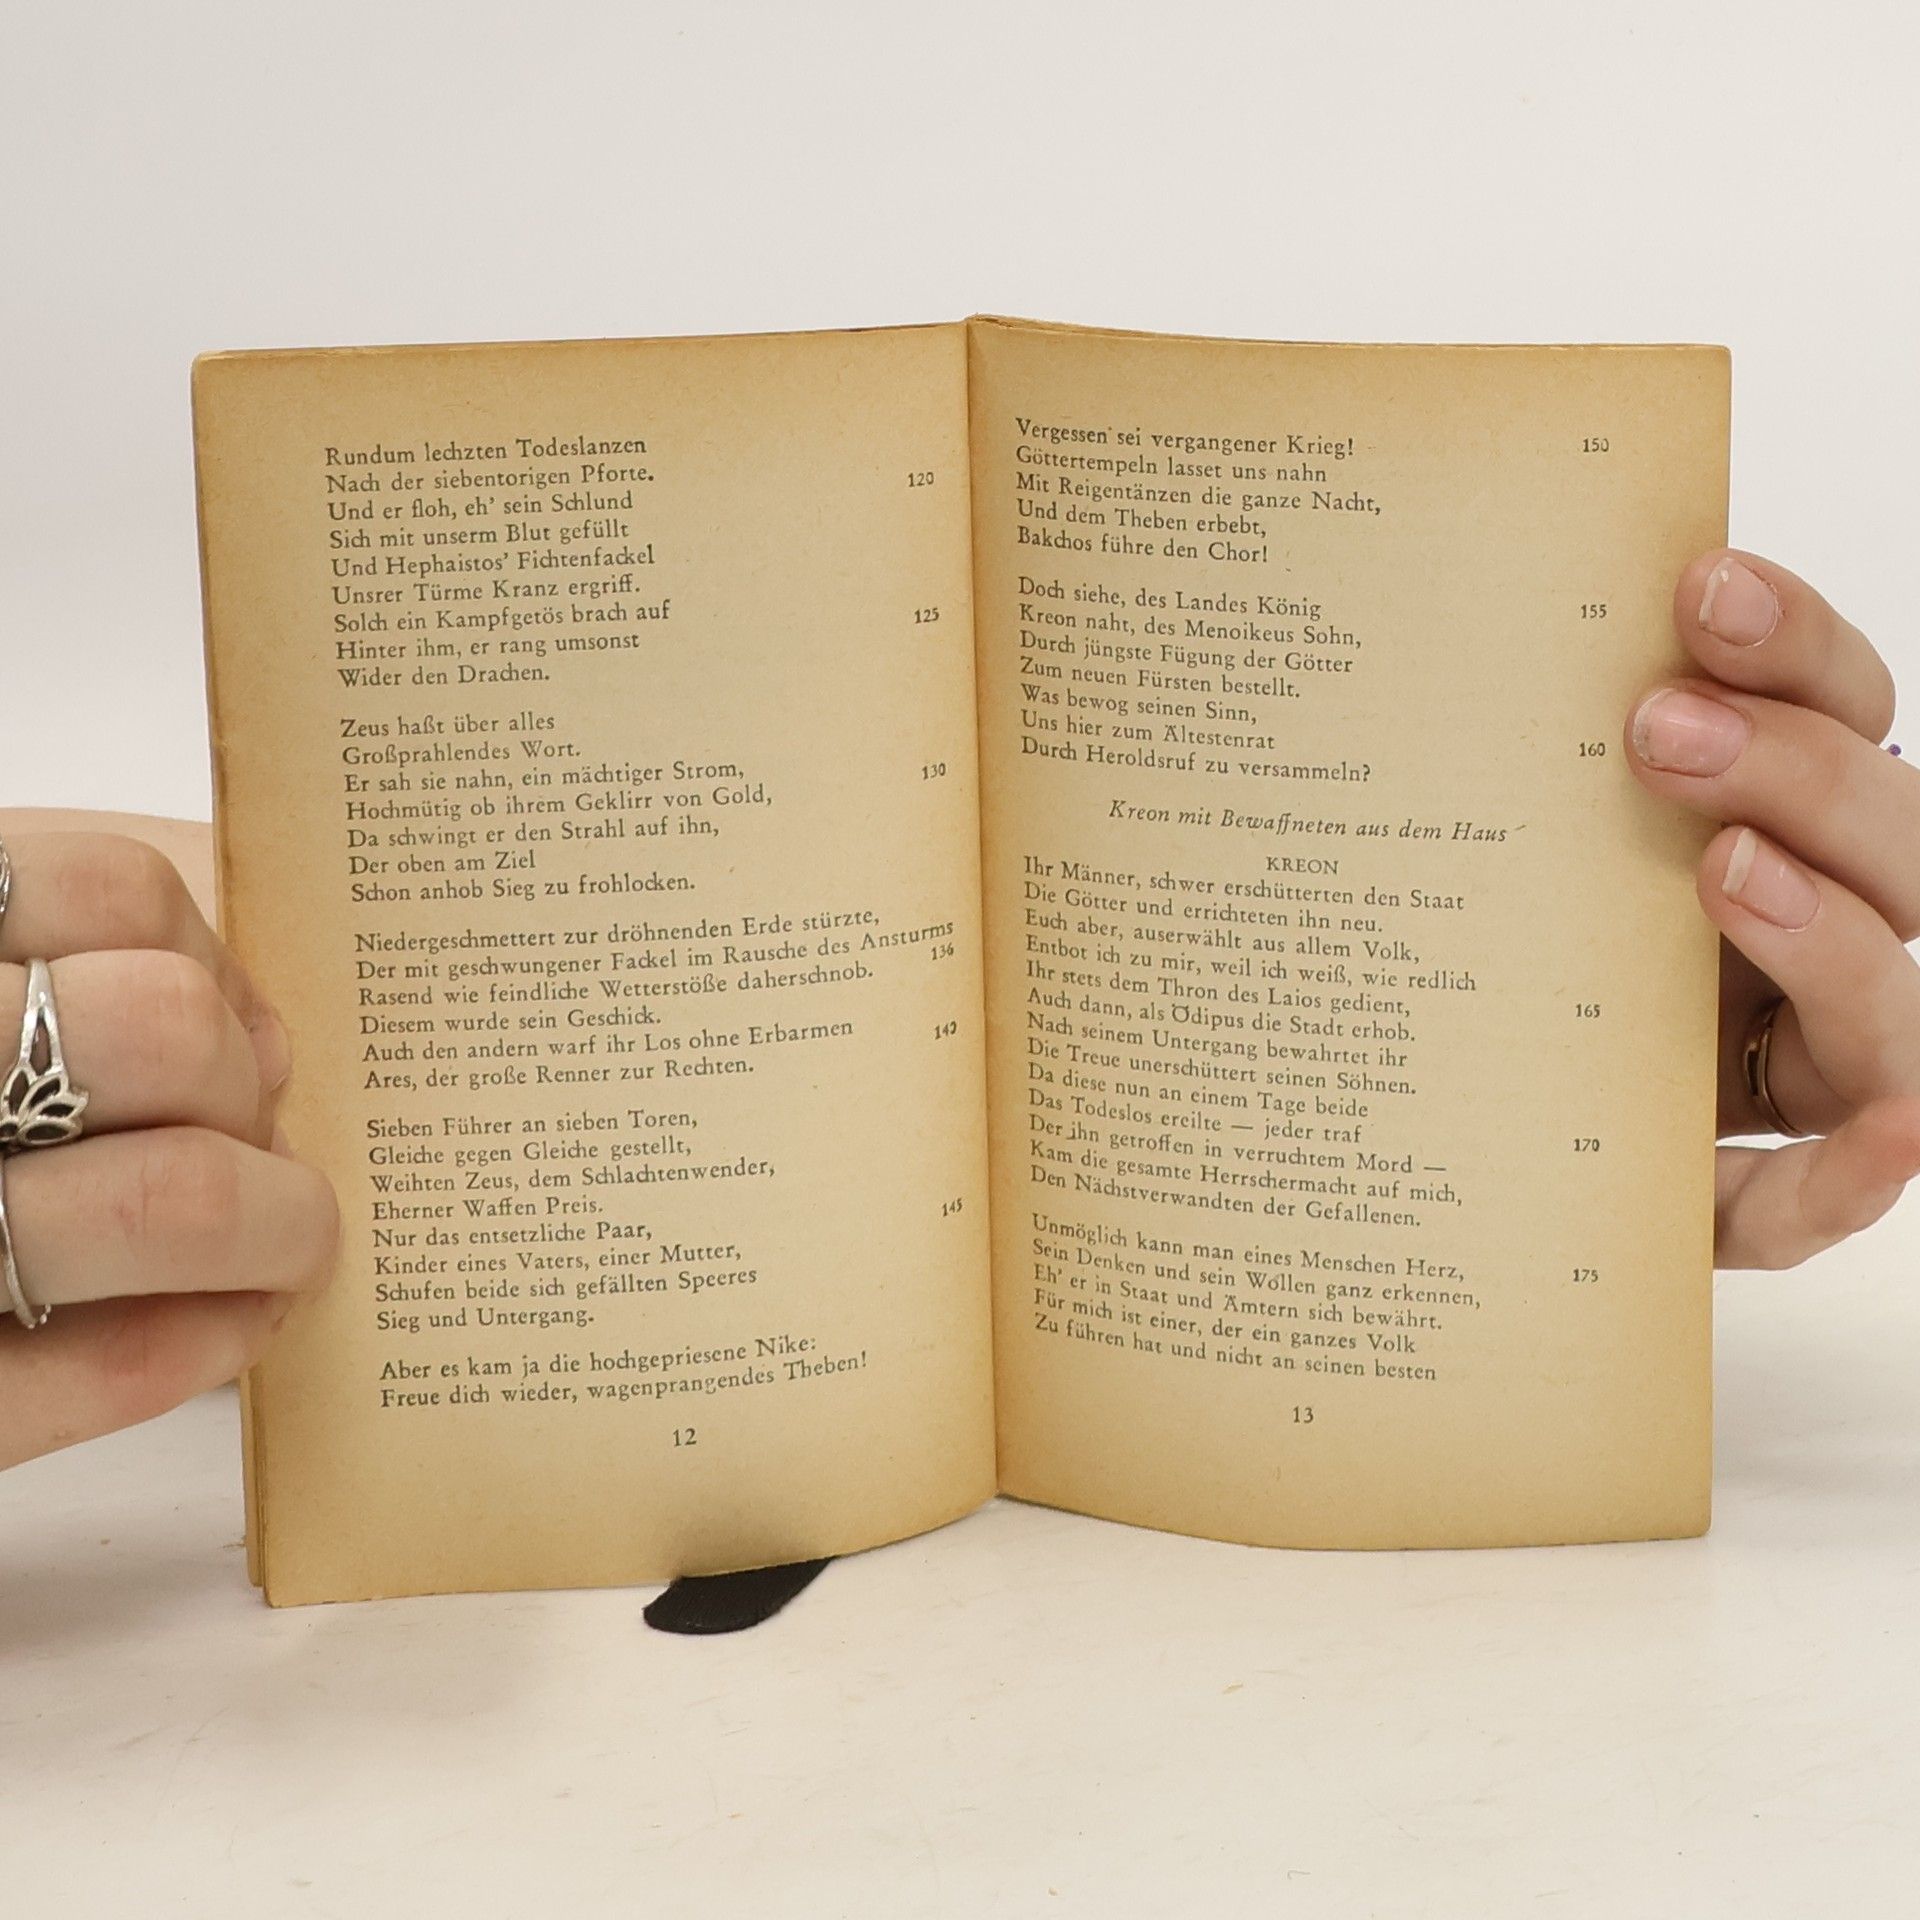 Rundum lechzten Todeslanzen
Nach der siebentorigen Pforte. 120
Und er floh, eh' sein Schlund
Sich mit unserm Blut gefüllt
Und Hephaistos' Fichtenfackel
Unsrer Türme Kranz ergriff.
Solch ein Kampfgetös brach auf 125
Hinter ihm, er rang umsonst
Wider den Drachen.
Zeus haßt über alles
Großprahlendes Wort.
Er sah sie nahn, ein mächtiger Strom, 130
Hochmütig ob ihrem Geklirr von Gold,
Da schwingt er den Strahl auf ihn,
Der oben am Ziel
Schon anhob Sieg zu frohlocken.
Niedergeschmettert zur dröhnenden Erde stürzte,
Der mit geschwungener Fackel im Rausche des Ansturms
Rasend wie feindliche Wetterstöße daherschnob. 136
Diesem wurde sein Geschick.
Auch den andern warf ihr Los ohne Erbarmen 140
Ares, der große Renner zur Rechten.
Sieben Führer an sieben Toren,
Gleiche gegen Gleiche gestellt,
Weihten Zeus, dem Schlachtenwender,
Eherner Waffen Preis. 145
Nur das entsetzliche Paar,
Kinder eines Vaters, einer Mutter,
Schufen beide sich gefällten Speeres
Sieg und Untergang.
Aber es kam ja die hochgepriesene Nike:
Freue dich wieder, wagenprangendes Theben!
12
Vergessen sei vergangener Krieg! 150
Göttertempeln lasset uns nahn
Mit Reigentänzen die ganze Nacht,
Und dem Theben erbebt,
Bakchos führe den Chor!
Doch siehe, des Landes König 155
Kreon naht, des Menoikeus Sohn,
Durch jüngste Fügung der Götter
Zum neuen Fürsten bestellt.
Was bewog seinen Sinn,
Uns hier zum Ältestenrat 160
Durch Heroldsruf zu versammeln?
Kreon mit Bewaffneten aus dem Haus
KREON
Ihr Männer, schwer erschütterten den Staat
Die Götter und errichteten ihn neu.
Euch aber, auserwählt aus allem Volk,
Entbot ich zu mir, weil ich weiß, wie redlich
Ihr stets dem Thron des Laios gedient, 165
Auch dann, als Ödipus die Stadt erhob.
Nach seinem Untergang bewahrtet ihr
Die Treue unerschüttert seinen Söhnen.
Da diese nun an einem Tage beide
Das Todeslos ereilte — jeder traf 170
Der ihn getroffen in verruchtem Mord —
Kam die gesamte Herrschermacht auf mich,
Den Nächstverwandten der Gefallenen.
Unmöglich kann man eines Menschen Herz, 175
Sein Denken und sein Wollen ganz erkennen,
Eh' er in Staat und Ämtern sich bewährt.
Für mich ist einer, der ein ganzes Volk
Zu führen hat und nicht an seinen besten
13